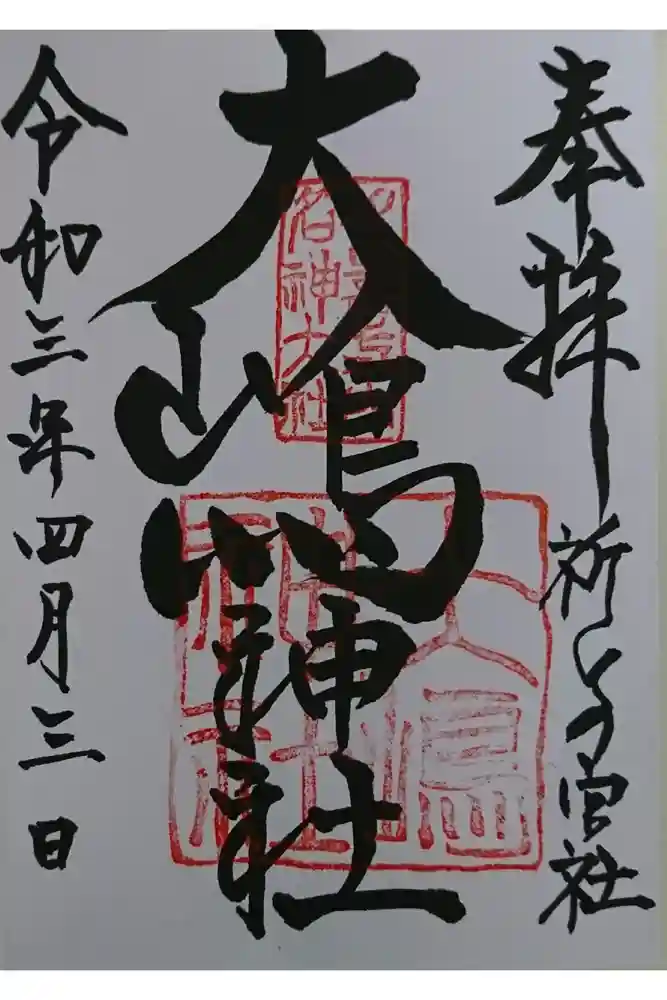 奉拝
祈りの宮社
大嶋神社
令和三年四月三日
名神大社